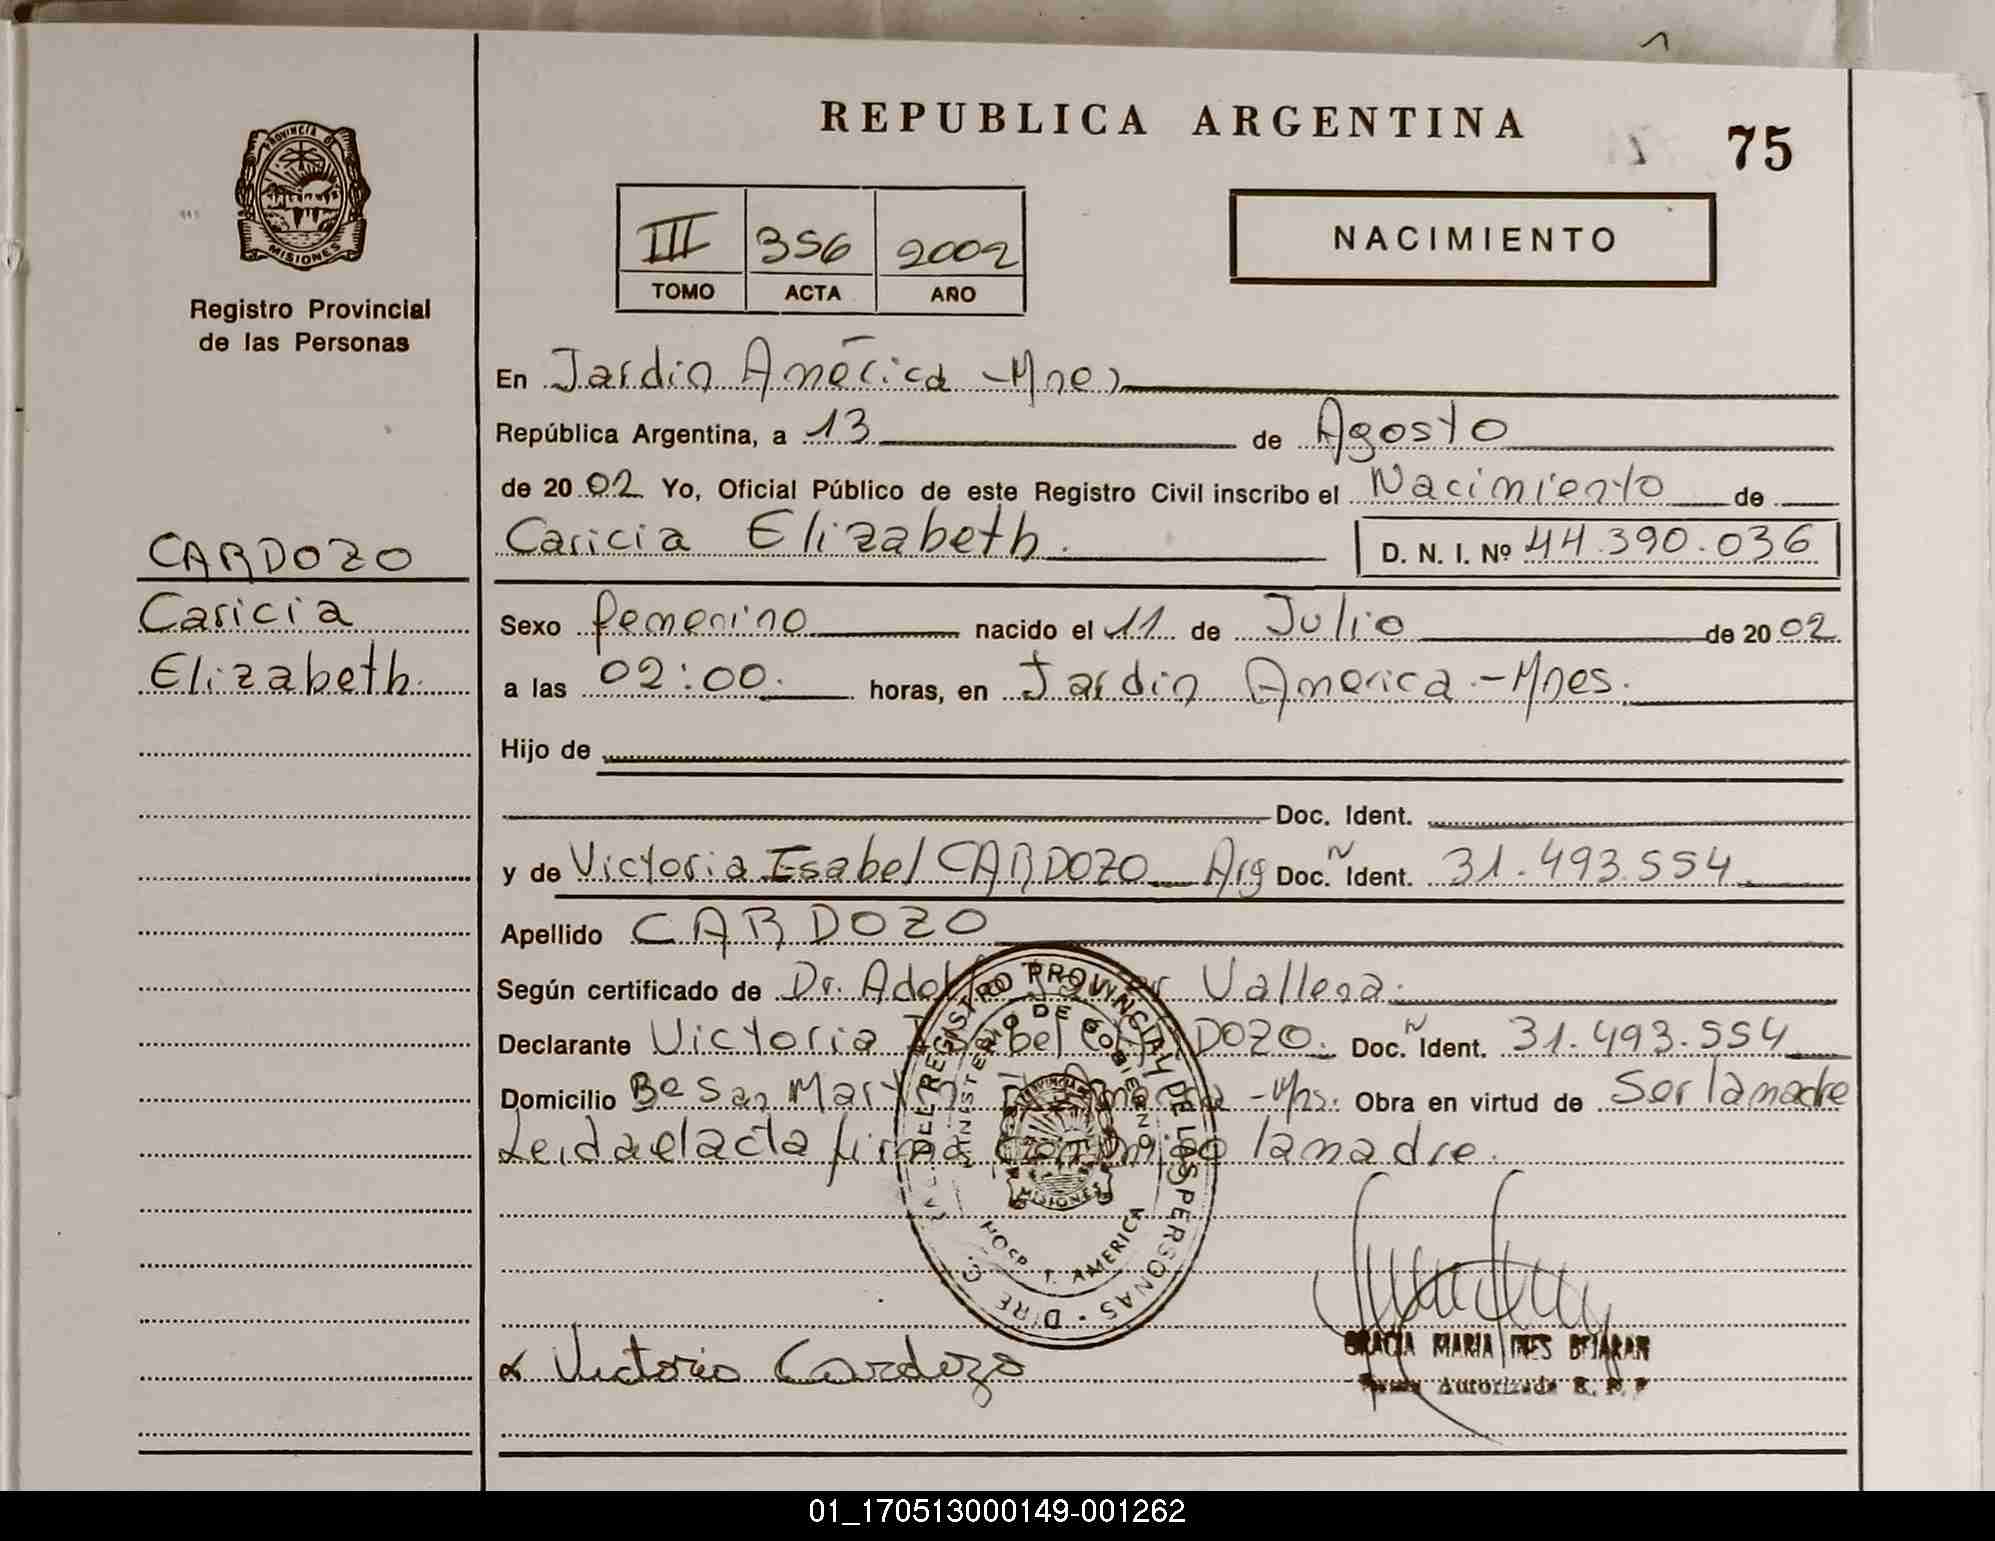 REPUBLICA ARGENTINA
75
PROVINCIA DE
MISIONES
Registro Provincial
de las Personas
III 356 2002
TOMO ACTA AÑO
NACIMIENTO
En Jardin América -Mnes
República Argentina, a 13 de Agosto
de 2002 Yo, Oficial Público de este Registro Civil inscribo el Nacimiento de
Caricia Elizabeth. D. N. I. Nº 44.390.036
CARDOZO
Caricia
Elizabeth.
Sexo femenino nacido el 11 de Julio de 2002
a las 02:00. horas, en Jardin America.-Mnes.
Hijo de
Doc. Ident.
y de Victoria Isabel CARDOZO Arg Doc. Ident. 31.493.554
Apellido CARDOZO
Según certificado de Dr. Vallena.
Declarante Victoria Isabel CARDOZO. Doc. Ident. 31.493.554
Domicilio Bº San Martin -Mns. Obra en virtud de Ser la madre
Leida el acta firma conmigo la madre.
REGISTRO PROVINCIAL DE LAS PERSONAS
MINISTERIO DE GOBIERNO
PROVINCIA DE
MISIONES
HOSP. AMERICA
Victoria Cardozo
GRACIA MARIA INES BEJARAN
Autorizada
01_170513000149-001262